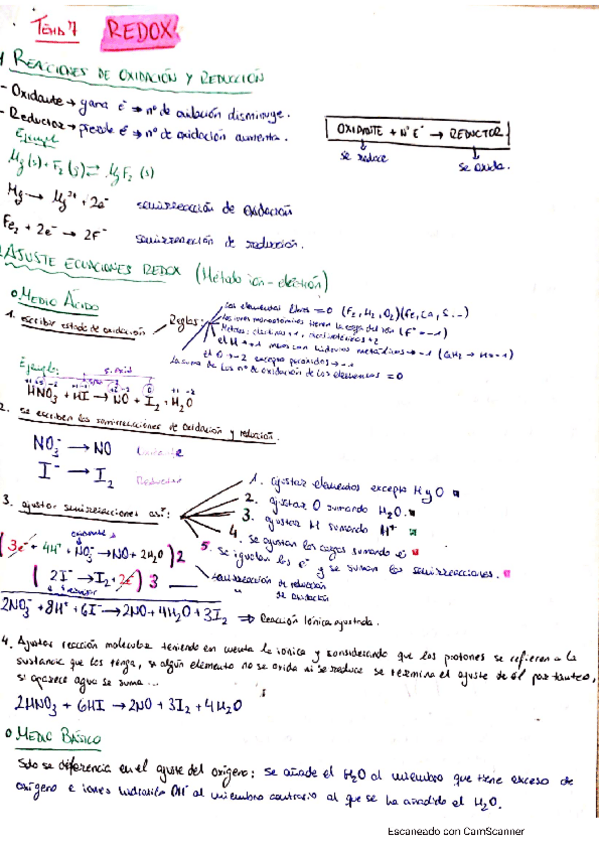 TEMA 7 REDOX
REACCIONES DE OXIDACIÓN Y REDUCCIÓN
- Oxidante → gana e⁻ → nº de oxidación disminuye.
- Reductor → pierde e⁻ → nº de oxidación aumenta.
OXIDANTE + Nº E⁻ → REDUCTOR
se reduce
se oxida.
Ejemplo
Mg(s) + F₂(g) ⇄ MgF₂ (s)
Mg → Mg²⁺ + 2e⁻ semirreacción de oxidación
Fe₂ + 2e⁻ → 2F⁻ semirreacción de reducción.
AJUSTE ECUACIONES REDOX (Método ion-electrón)
o MEDIO ÁCIDO
1. escribir estado de oxidación
Reglas:
Los elementos libres = 0 (F₂, H₂, O₂)(Fe, Ca, S...)
Los iones monoatómicos tienen la carga del ion (F⁻ = -1)
Metales: alcalinos +1, alcalinotérreos +2
el H → +1 menos con hidruros metálicos → -1
el O → -2 excepto peróxidos → -1
La suma de los nº de oxidación de los elementos = 0
Ejemplo:
HNO₃ + HI → NO + I₂ + H₂O
2. se escriben las semirreacciones de oxidación y reducción.
NO₃⁻ → NO Oxidante
I⁻ → I₂ Reductor
3. ajustar semirreacciones así:
1. ajustar elementos excepto H y O
2. ajustar O sumando H₂O.
3. ajustar H sumando H⁺
4. se ajustan las cargas sumando e⁻
5. se igualan los e⁻ y se suman las semirreacciones.
oxidante
( 3e⁻ + 4H⁺ + NO₃⁻ → NO + 2H₂O ) 2
( 2I⁻ → I₂ + 2e⁻ ) 3
reductor
semirreacción de reducción
" de oxidación
2NO₃⁻ + 8H⁺ + 6I⁻ → 2NO + 4H₂O + 3I₂ ⇒ Reacción Iónica ajustada.
4. Ajustar reacción molecular teniendo en cuenta la iónica y considerando que los protones se refieren a la
sustancia que los tenga, si algún elemento no se oxida ni se reduce se termina el ajuste de él por tanteo,
si aparece agua se suma...
2HNO₃ + 6HI → 2NO + 3I₂ + 4H₂O
o MEDIO BÁSICO
Solo se diferencia en el ajuste del oxígeno: se añade el H₂O al miembro que tiene exceso de
oxígeno e iones hidroxilo OH⁻ al miembro contrario al que se ha añadido el H₂O.
Escaneado con CamScanner